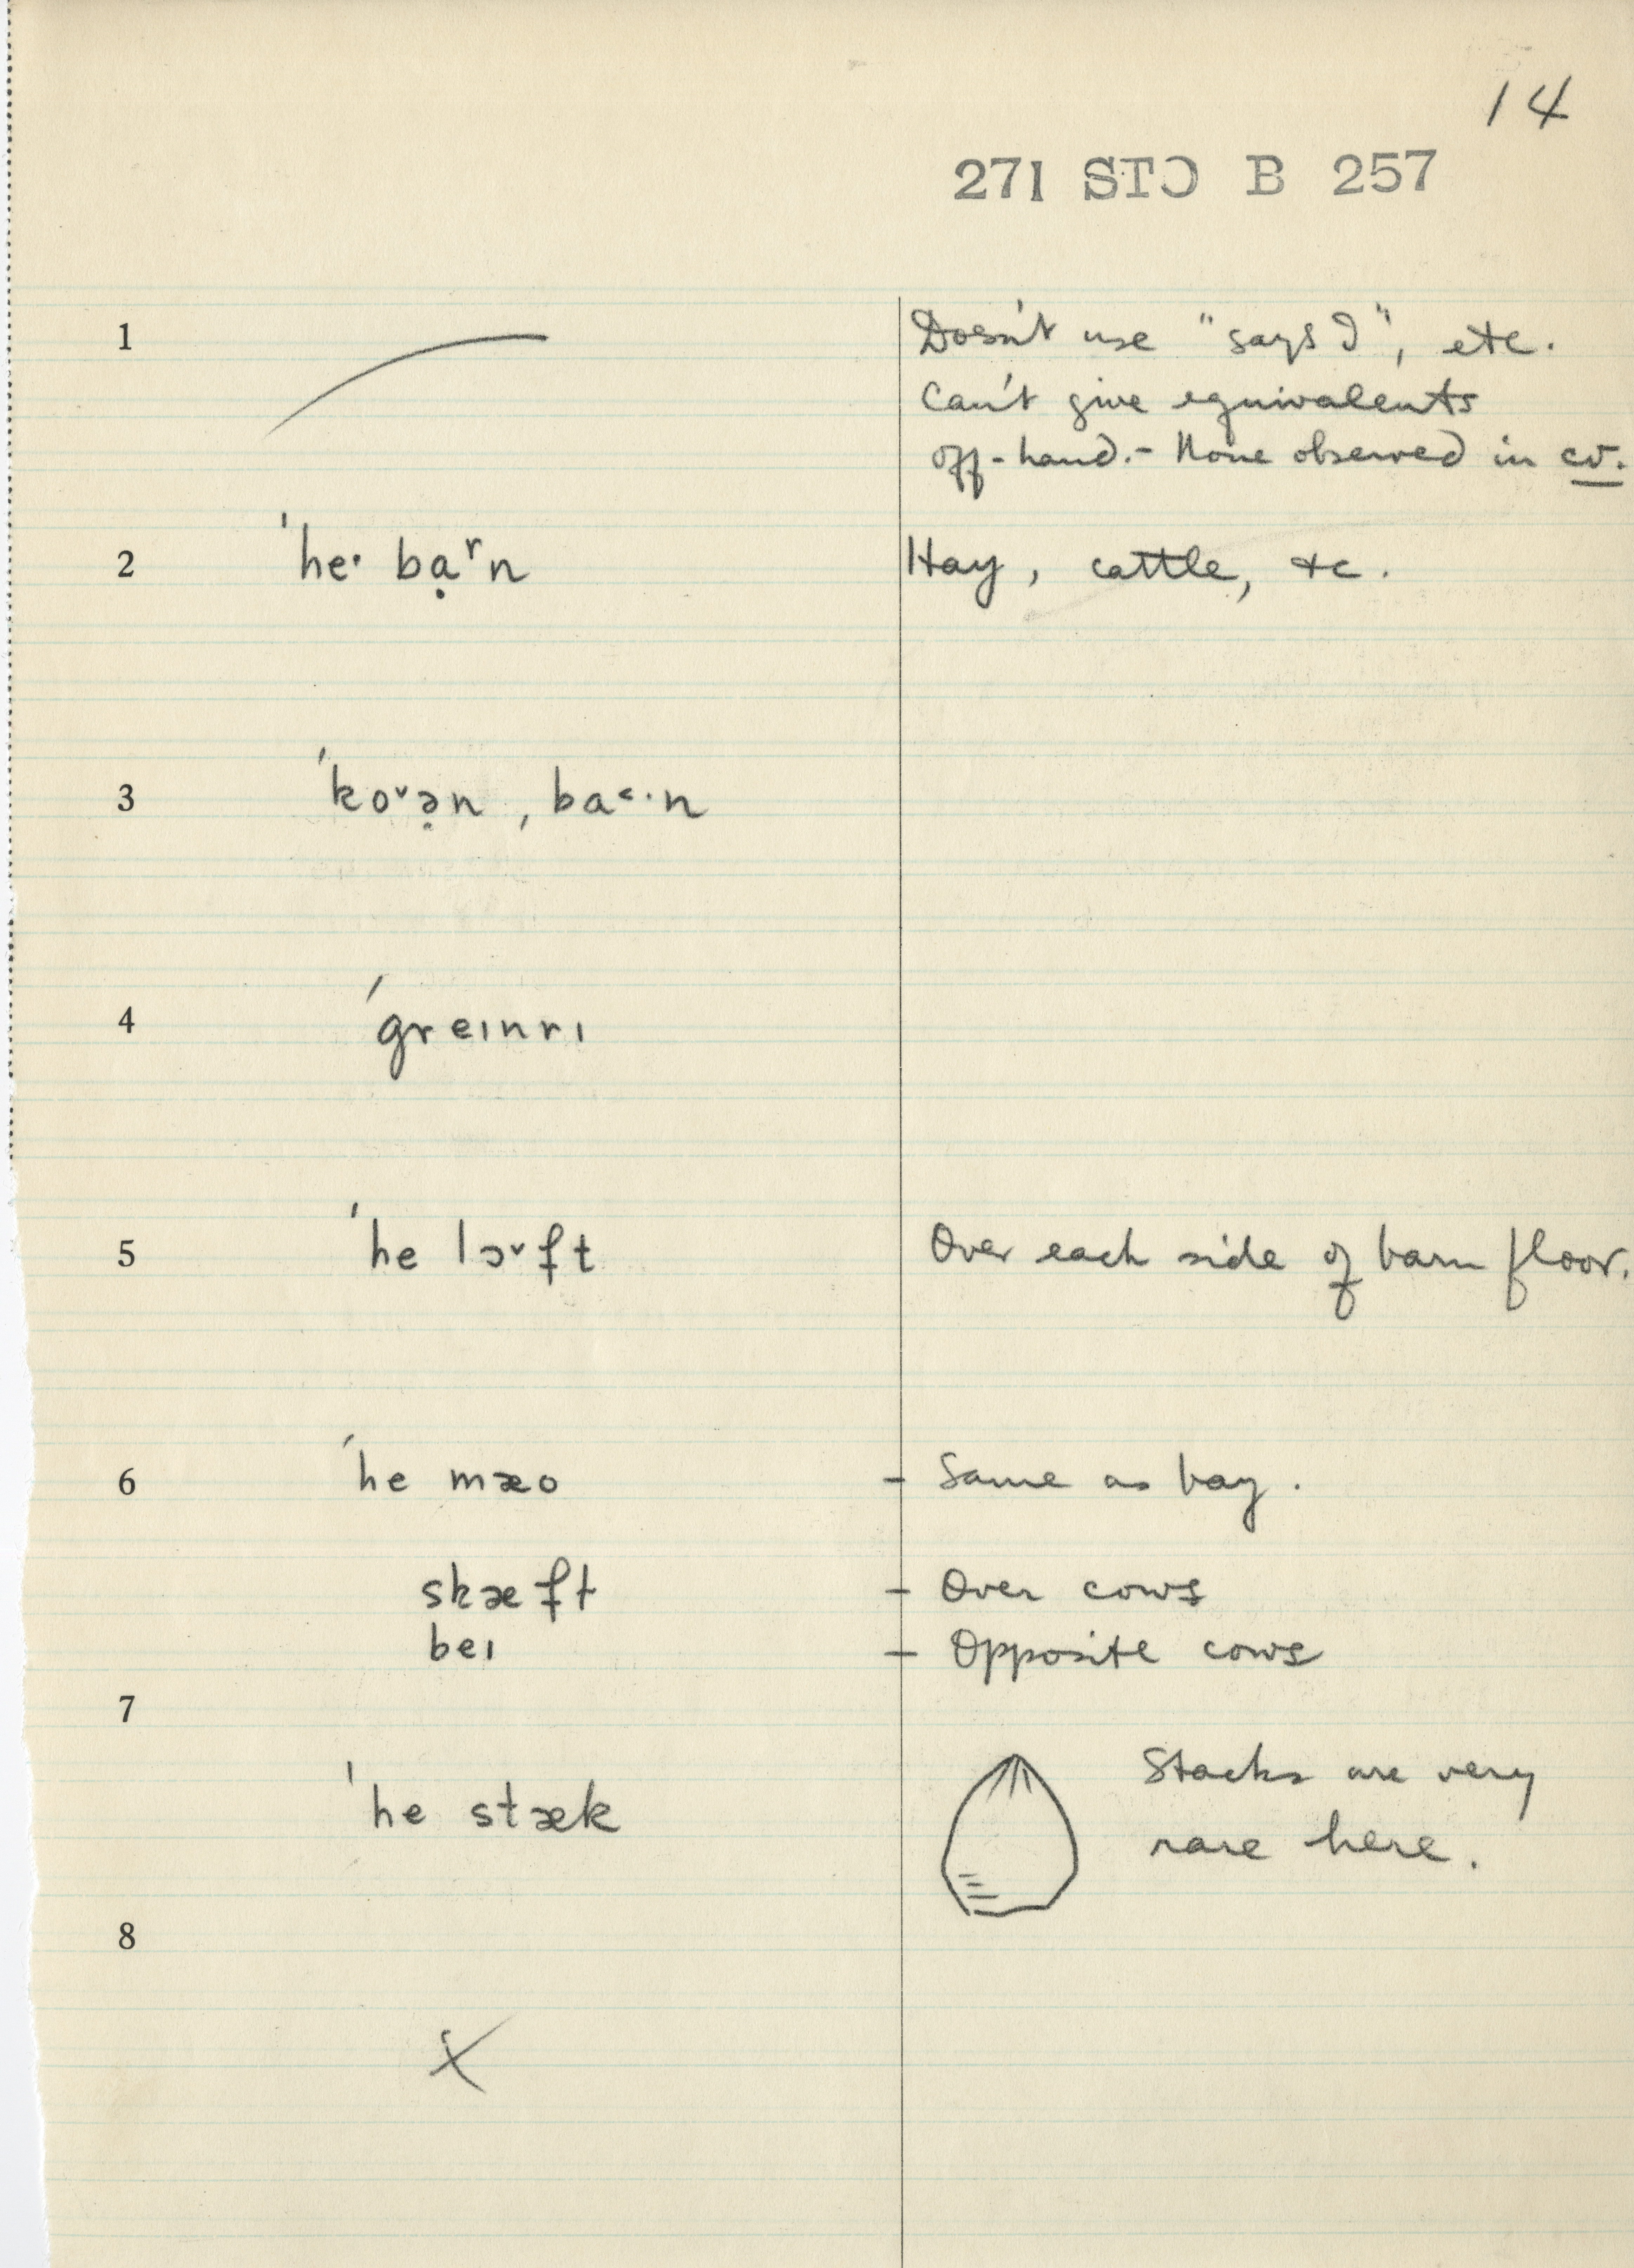 14
271 STO B 257
1 Doesn't use "says I", etc.
Can't give equivalents
off-hand.- None observed in cv.
2 ˈheˑ bạʳn Hay, cattle, etc.
3 ˈkoˇə̣n, ba˂ˑn
4 ˈgreɪnrɪ
5 ˈhe lɔˇft Over each side of barn floor.
6 ˈhe mæo - Same as bay.
skæft - Over cows
beɪ - Opposite cows
7
ˈhe stæk Stacks are very
rare here.
8
X